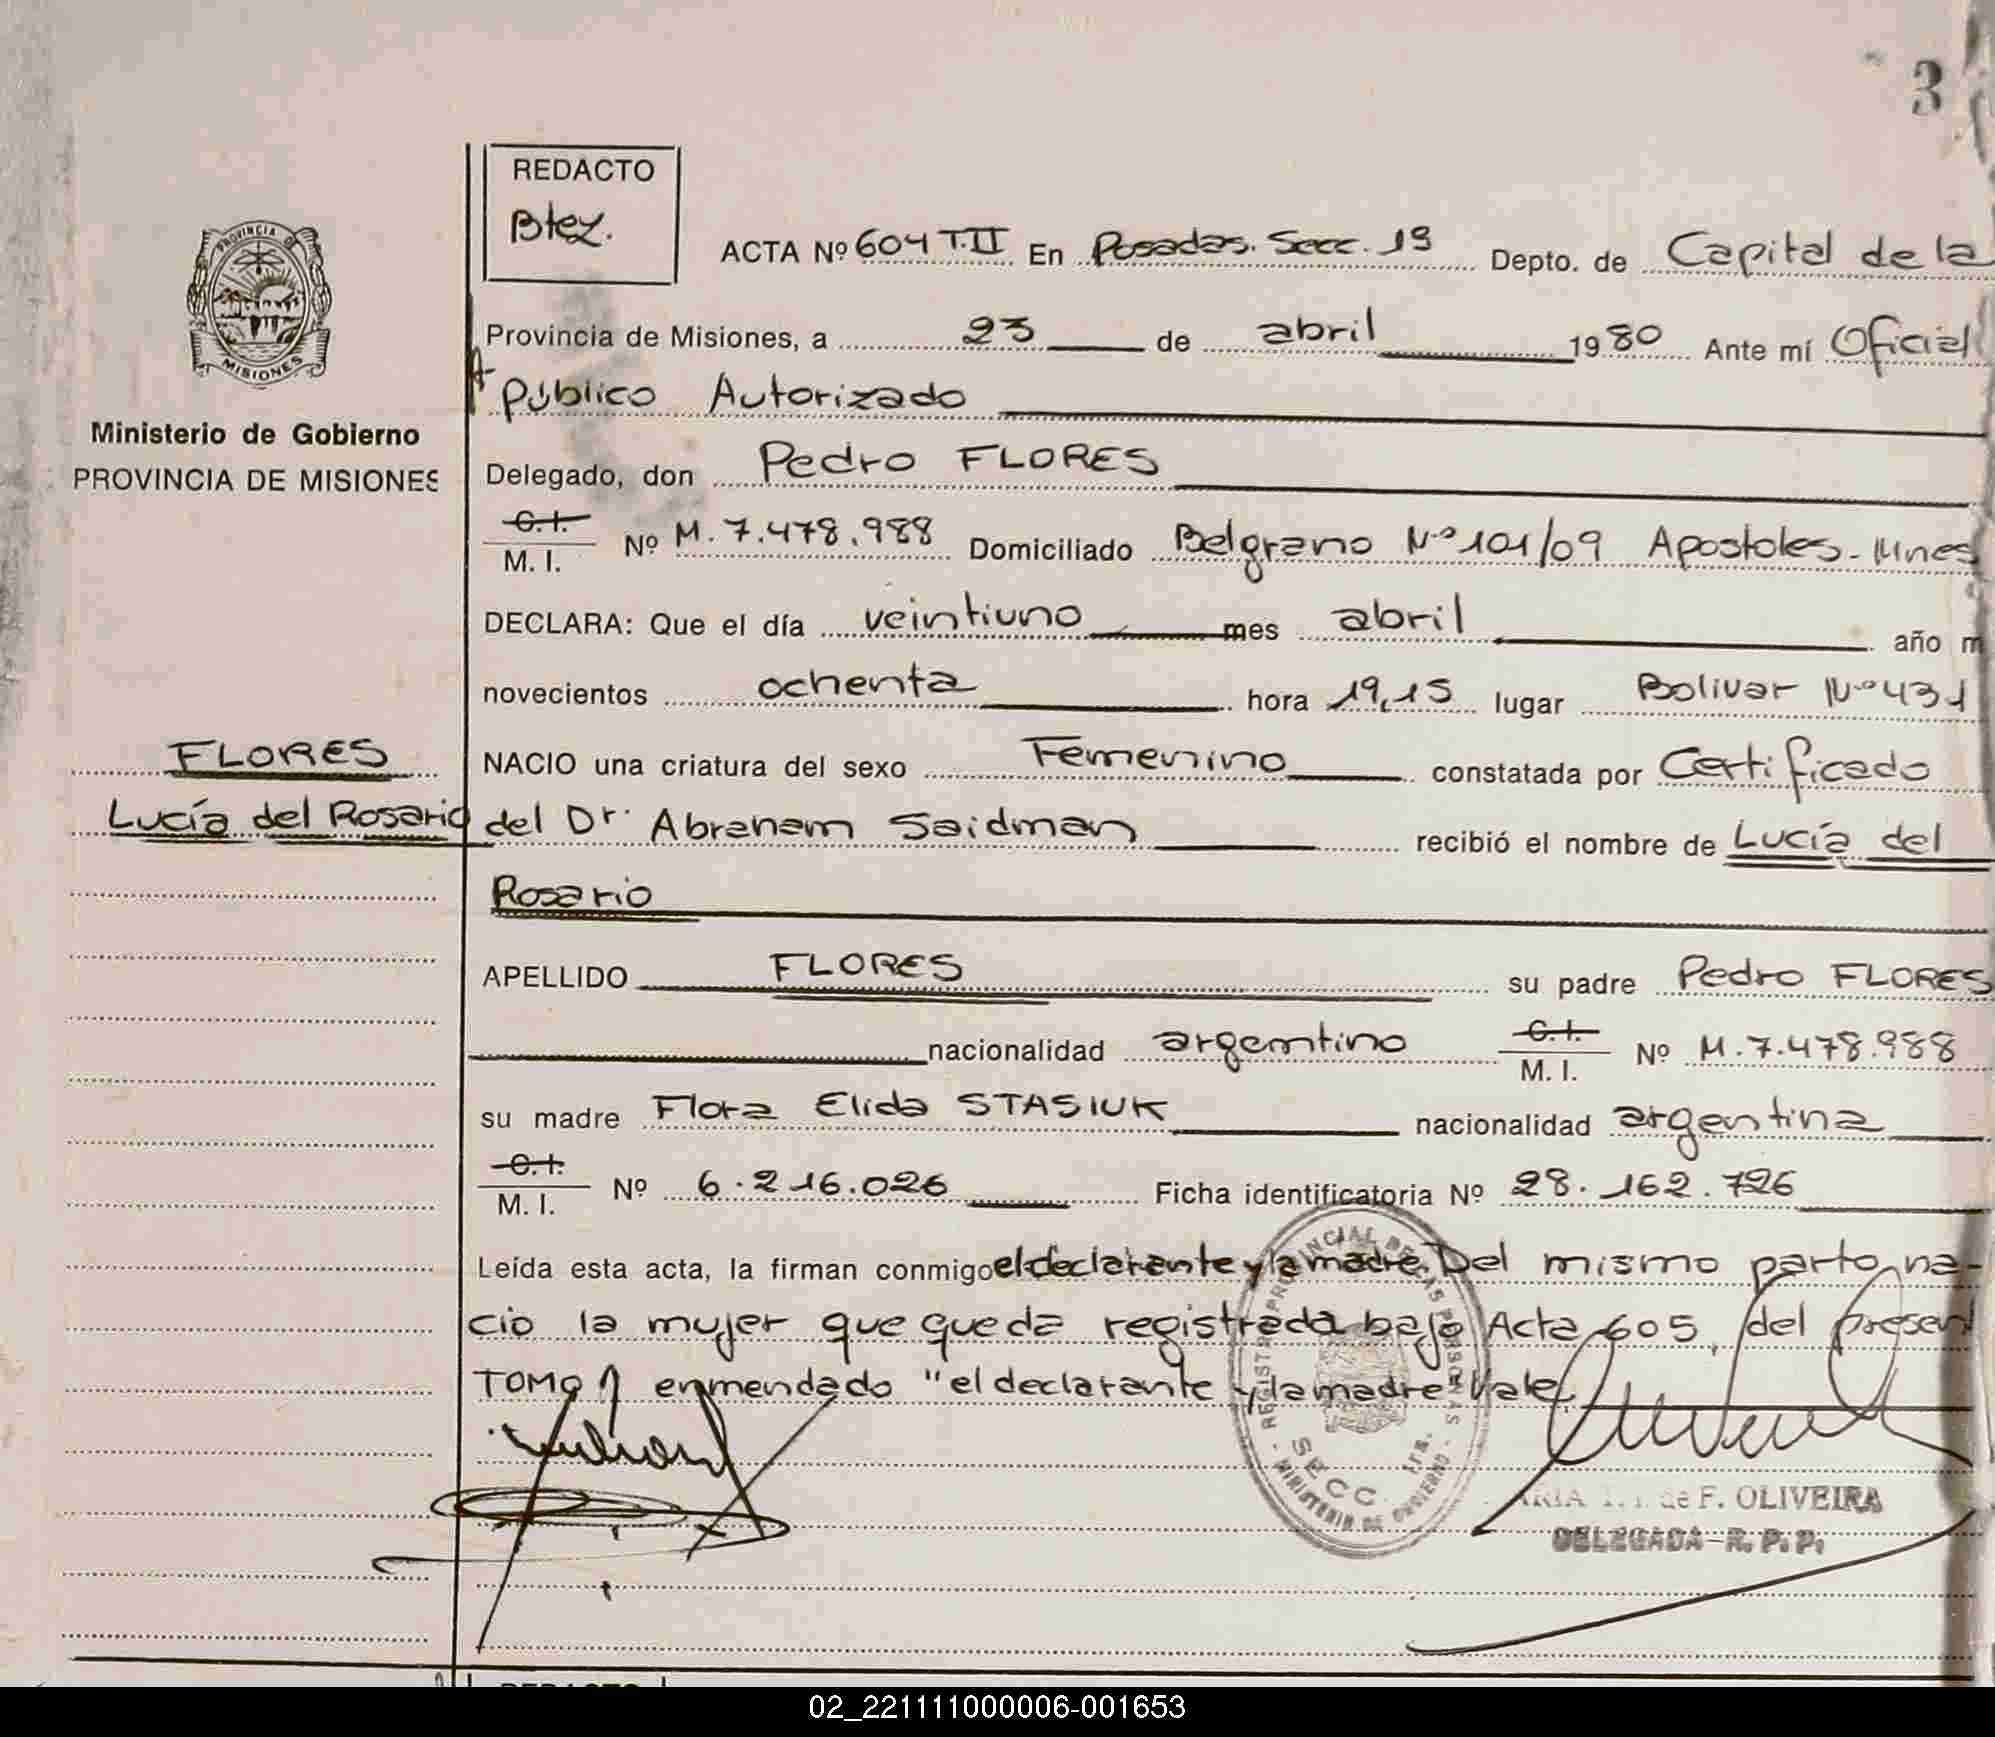 3
REDACTO
Btez.
ACTA Nº 604 T.II En Posadas. Secc. 19 Depto. de Capital de la
Provincia de Misiones, a 23 de abril 1980 Ante mí Oficial
Público Autorizado
Delegado, don Pedro FLORES
C.I.
M. I. Nº M. 7.478.988 Domiciliado Belgrano Nº 101/09 Apostoles - Mnes
DECLARA: Que el día veintiuno mes abril año m
novecientos ochenta hora 19,15 lugar Bolivar Nº 431
NACIO una criatura del sexo Femenino constatada por Certificado
del Dr. Abraham Saidman recibió el nombre de Lucía del
Rosario
APELLIDO FLORES su padre Pedro FLORES
nacionalidad argentino C.I. M. I. Nº M. 7.478.988
su madre Flora Elida STASIUK nacionalidad argentina
C.I.
M. I. Nº 6.216.026 Ficha identificatoria Nº 28.162.726
Leída esta acta, la firman conmigo el declarante y la madre. Del mismo parto na-
cio la mujer que queda registrada bajo Acta 605, del present
TOMO enmendado "el declarante y la madre" Vale.
PROVINCIA D
MISIONES
Ministerio de Gobierno
PROVINCIA DE MISIONES
FLORES
Lucía del Rosario
REGISTRO PROVINCIAL DE LAS PERSONAS
SECC.
MINISTERIO DE GOBIERNO
de F. OLIVEIRA
DELEGADA-R. P. P.
REDACTO
02_221111000006-001653